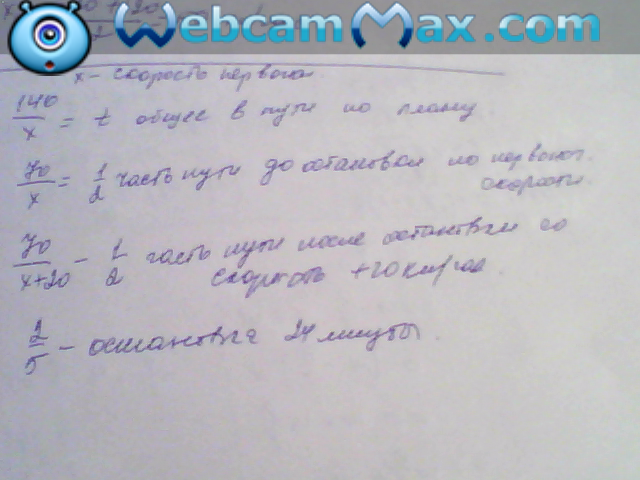 WebcamMax.com
x - скорость первонач
140/x = t общее в пути по плану
70/x = 1/2 часть пути до остановки по первонач.
скорости.
70/x+20 - 1/2 часть пути после остановки со
скорость +20 км/час.
2/5 - остановка 24 минуты.